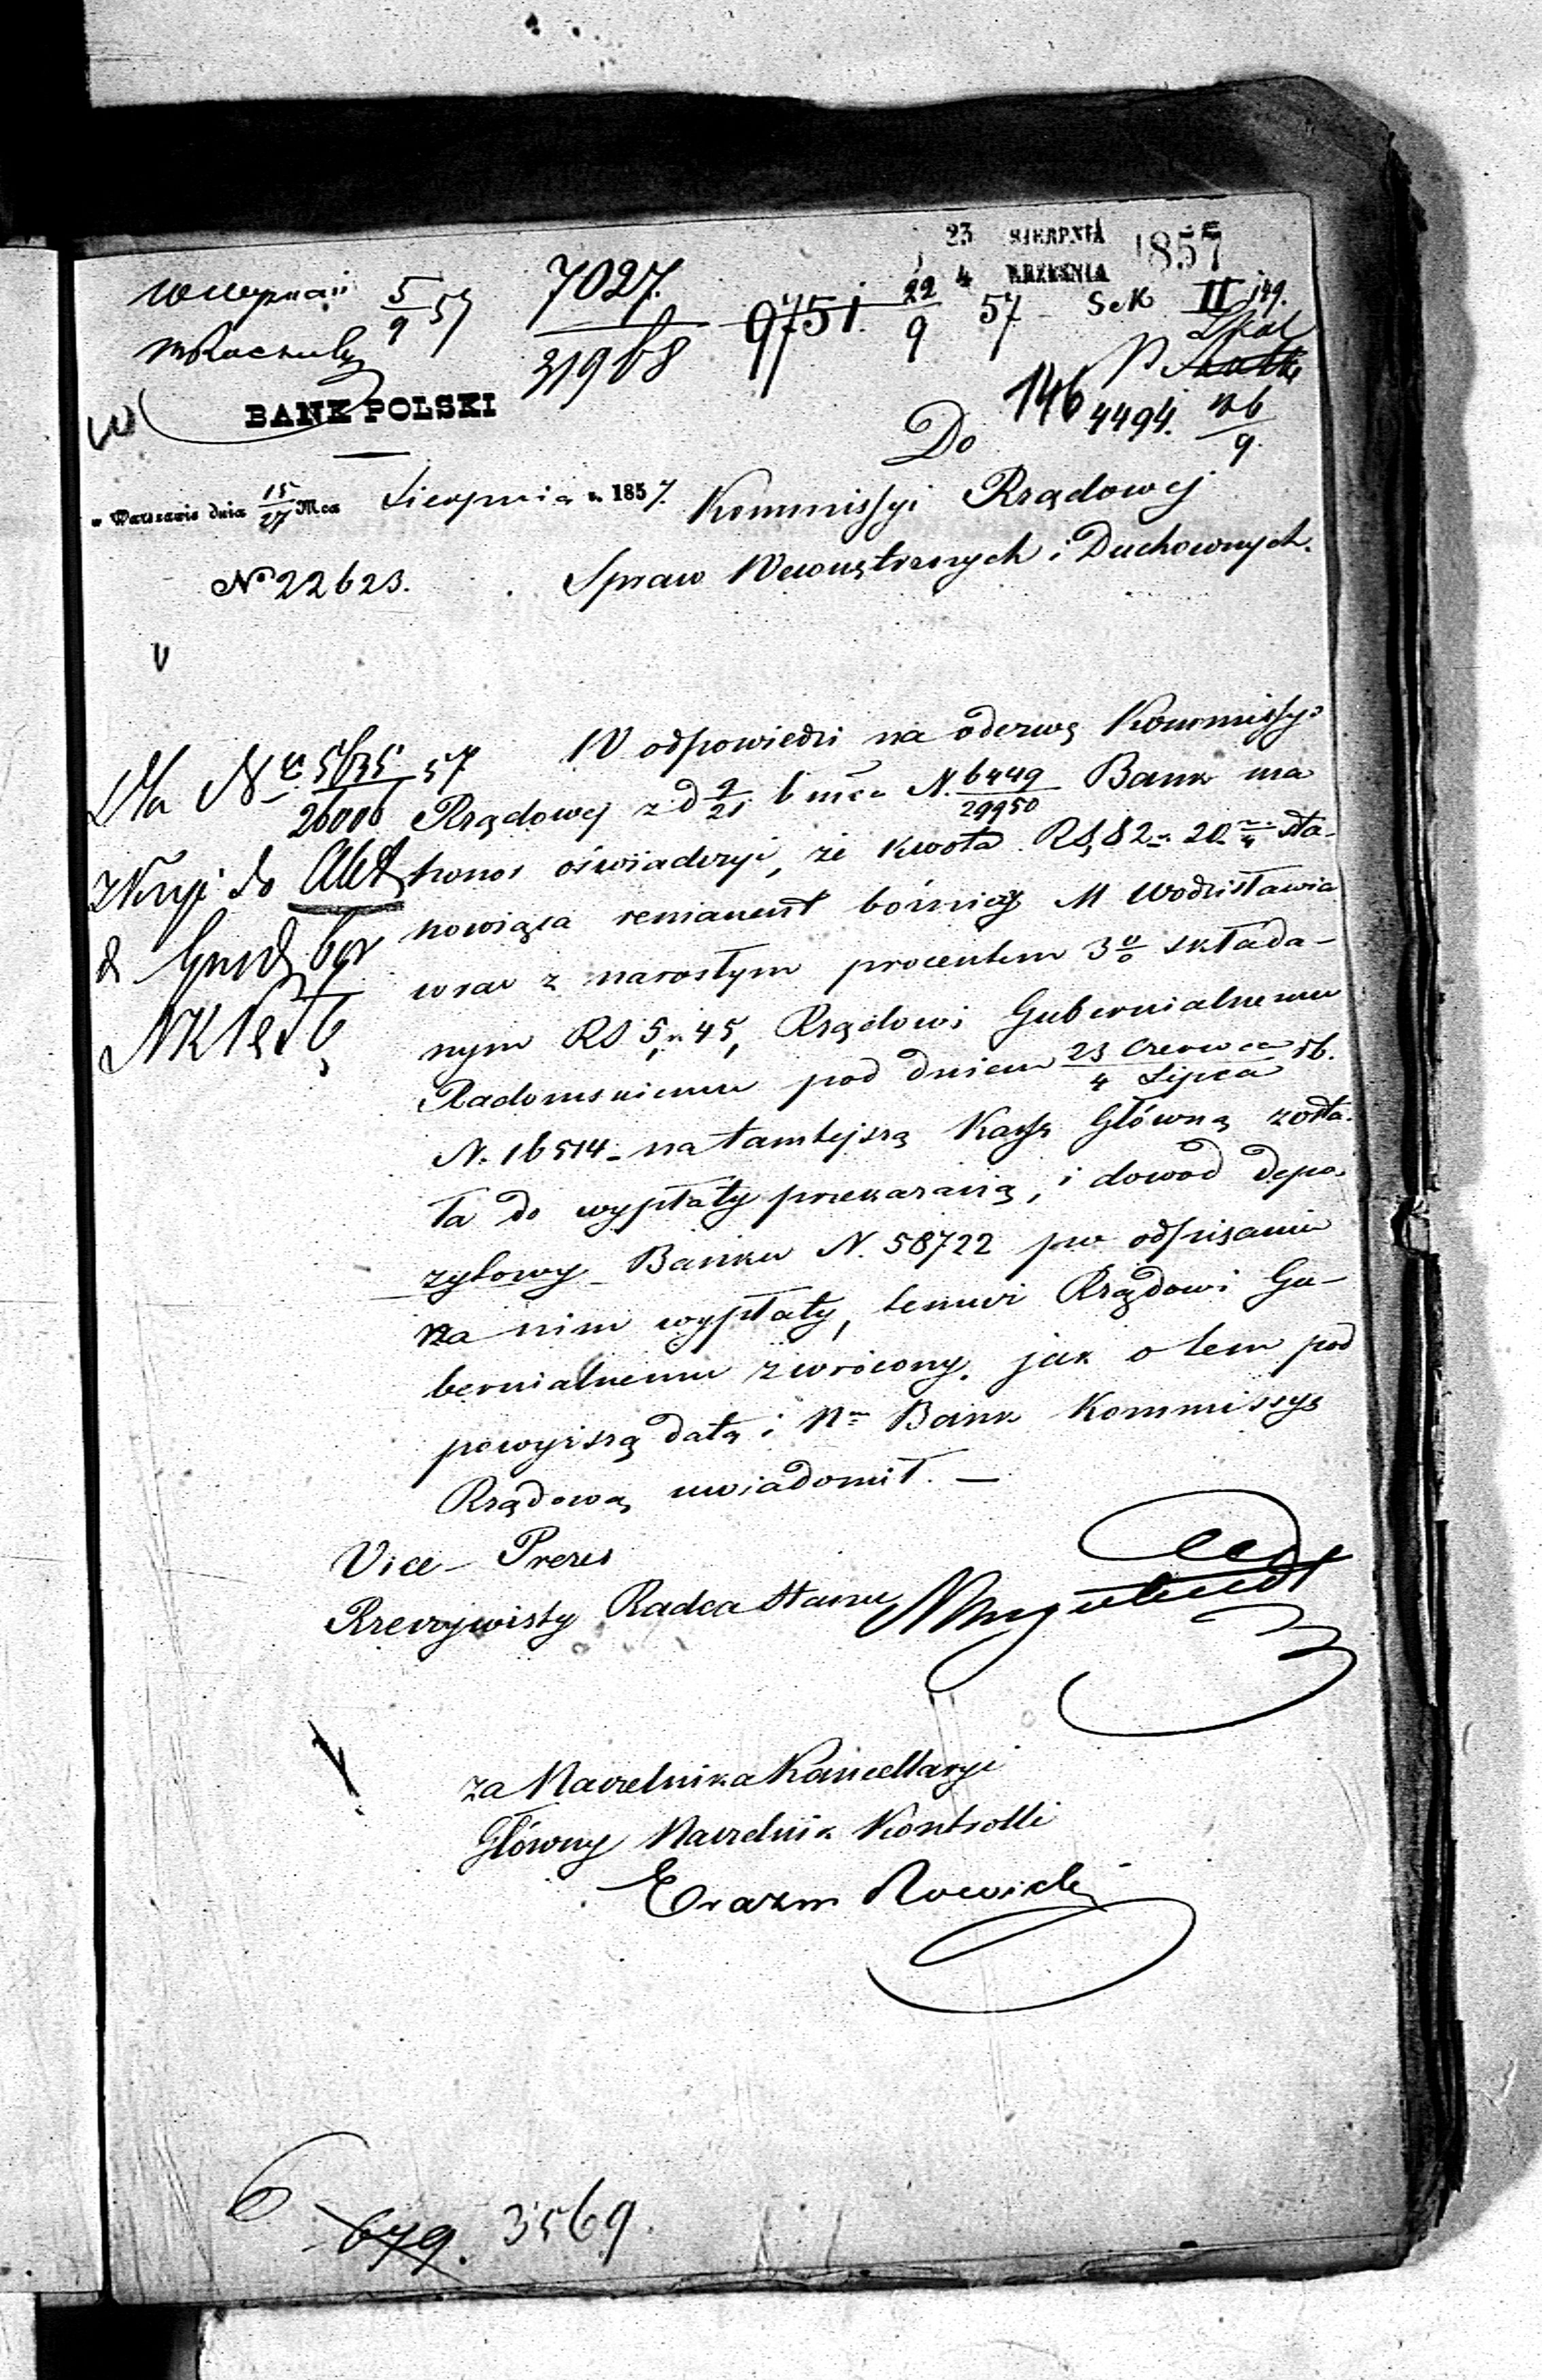 23 SIERPNIA
4 WRZEŚNIA 1857
5/9 57
7027.
31968
9751. 22/9 57 Sek II
146 4494.
BANK POLSKI
Do
w Warszawie dnia 15/27 Mca Sierpnia r. 1857.
Kommissyi Rządowej
No 22623.
Spraw Wewnętrznych i Duchownych.
W odpowiedzi na odezwę Kommissyi
Rządowej z d 9/21 b mca N. 6449/29950 Bank ma
honor oświadczyć, że kwota RS 82 k. 20 sta-
nowiąca remanent bóżnicy M Wodzisławia
wraz z narosłym procentem 3% składa-
nym RS 5 k. 45, Rządowi Gubernialnemu
Radomskiemu pod dniem 23 Czerwca/4 Lipca rb.
N. 16514 na tamtejszą Kassę Główną zosta-
ła do wypłaty przekazaną, i dowód depo-
zytowy Banku N. 58722 po odpisaniu
na nim wypłaty, temuż Rządowi Gu-
bernialnemu zwrócony, jak o tem pod
powyższą datą i Nm Bank Kommissyę
Rządową uwiadomił. —
Dla No 5635/26006 57
Vice-Prezes
Rzeczywisty Radca Stanu
za Naczelnika Kancellaryi
Główny Naczelnik Kontrolli
Erazm Nowicki
679. 3569.